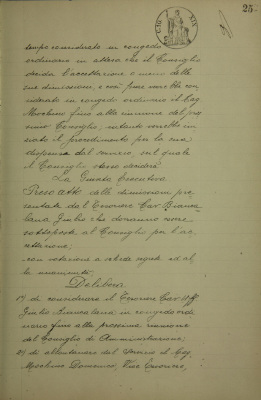 25
tempo considerato in congedo
ordinario in attesa che il Consiglio
decida l'accettazione o meno delle
sue dimissioni, e così pure sarebbe con
siderato in congedo ordinario il Rag.
fino alla riunione del pros
simo Consiglio, intanto verrebbe ini
ziato il procedimento per la sua
dispensa dal servizio, sul quale
il Consiglio stesso deciderà
La Giunta Esecutiva
Preso atto delle dimissioni pre
sentate dal Tesoriere Cav. Bianca
lana Giulio che dovranno essere
sottoposte al Consiglio per l'ac
cettazione;
con votazione a schede segrete ed al
la unanimità
Delibera
1°) di considerare il Tesoriere Cav. Uff.
Giulio Biancalana in congedo ordi
nario fino alla prossima riunione
del Consiglio di Amministrazione;
2°) di allontanare dal servizio il Rag.
Domenico, Vice Tesoriere,